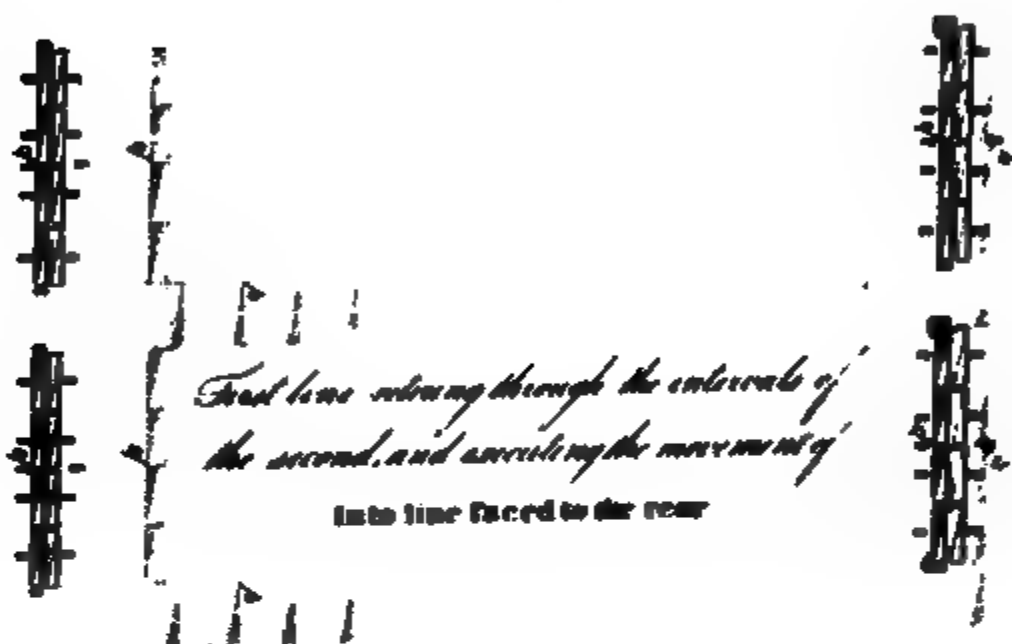 First line retiring through the intervals of
the second, and executing the movement of
Into line faced to the rear